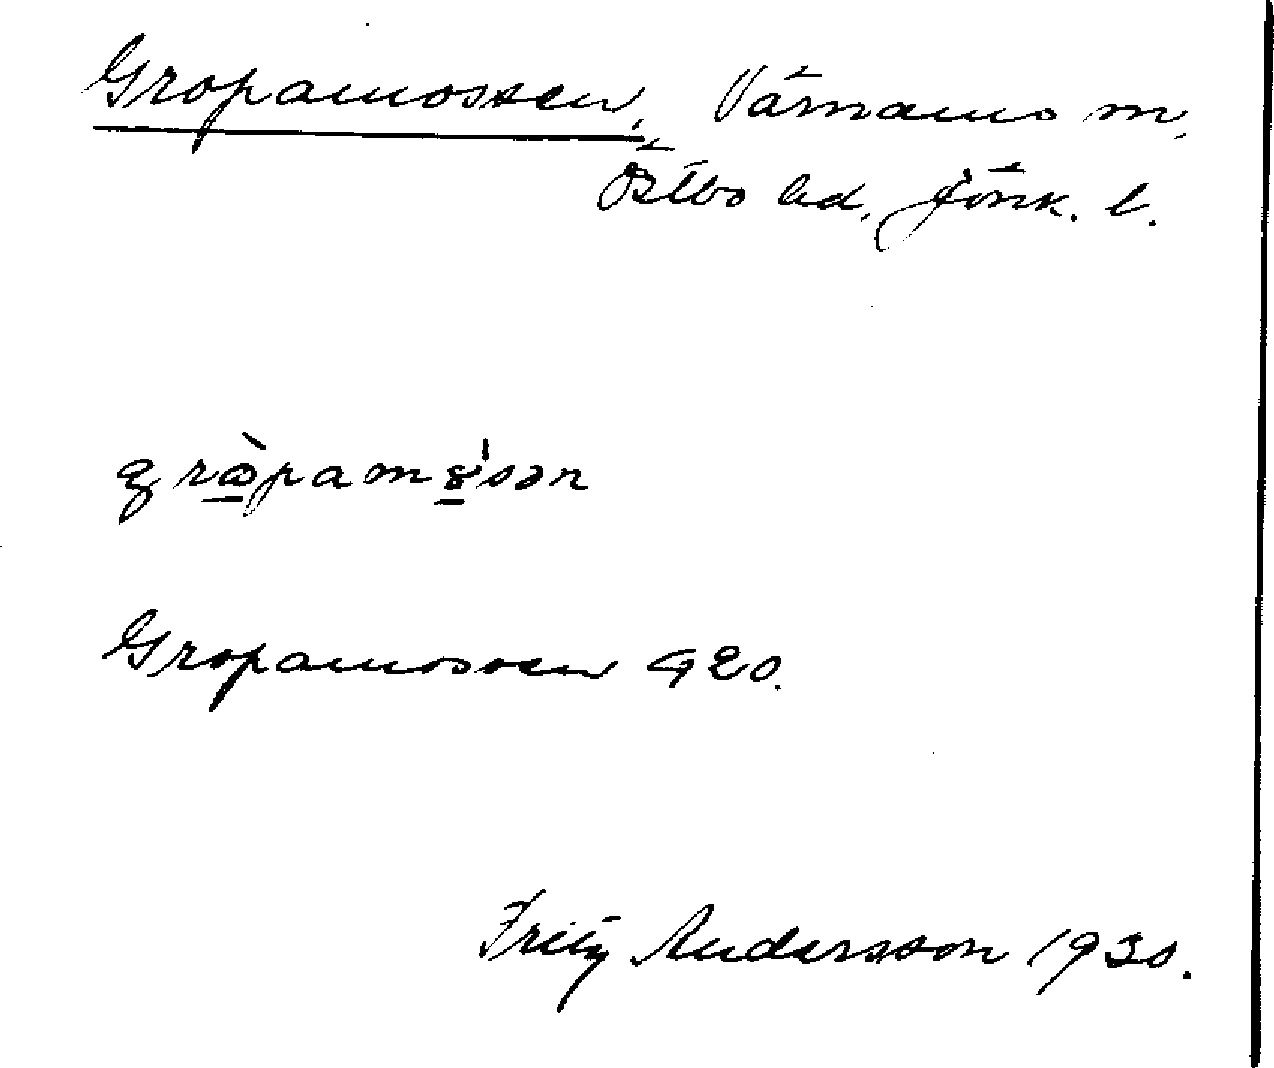 Gropamossen, Värnamo m,
Östbo hd, Jönk. l.
Gropamossen G20.
Fritz Andersson 1930.